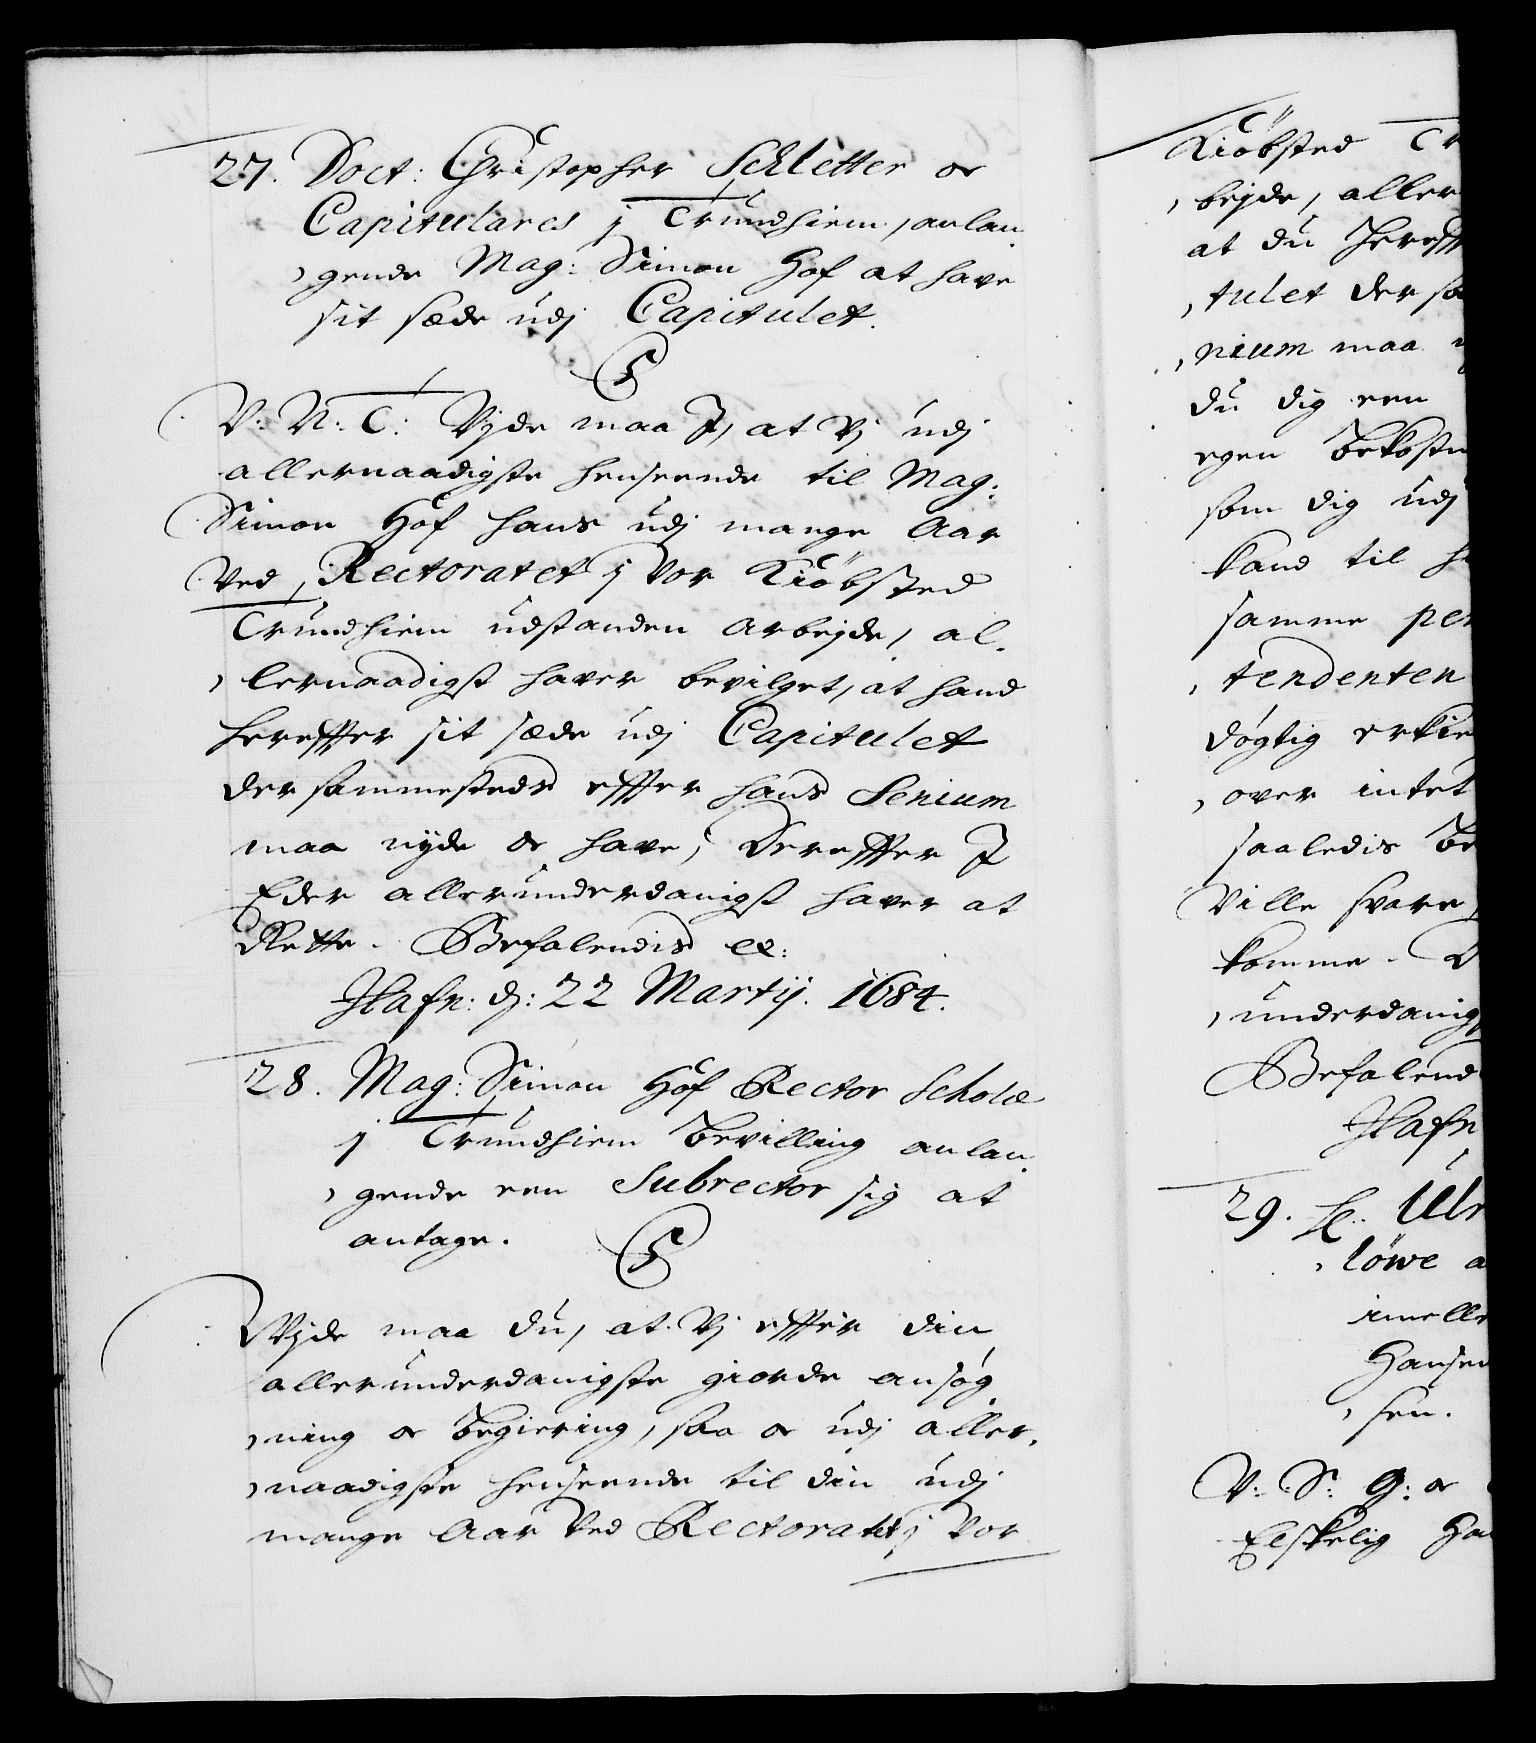 27. Doct: Christopher Schletter oc
Capitulares j Trundhiem, anlan,
,gende Mag: Simon Hof at have
sit sæde udj Capitulet.
V: N: T: Vide maa I, at Vj udj
allernaadigste henseende til Mag:
Simon Hof hans udj mange Aar
Ved Rectoratet j Vor Kiøbsted
Trundhiem udstanden Arbejde, al,
,lernaadigst haver bevilget, at hand
hereffter sit sæde udj Capitulet
der sammesteds effter hans Senium
maa nyde oc have, Dereffter I
Eder allerunderdanigst haver at
Rette. Befalendis etc:
Hafn: d: 22 Martij. 1684.
28. Mag: Simon Hof Rector Scholæ
j Trundhiem Bevilling anlan,
,gende een Subrector sig at
antage.
Vide maa du, at Vj effter din
allerunderdanigste giorde ansøg,
,ning oc Begiering, saa oc udj aller,
,naadigste henseende til din udj
mange Aar Ved Rectoratet j Vor
Kiøbsted Tr
,bejde, aller
at du hereff
,tulet der sa
,nium maa
du dig een
egen Bekostn
som dig udj
kand til
samme per
,tendenten
døgtig erkie
,over intet
saaledis Be
Ville svare
komme.
,underdanig
Befalend
Hafn
29. Ulr
,løwe a
imelle
Hansen
,sen.
V: S: G: oc
Elskelig Ha